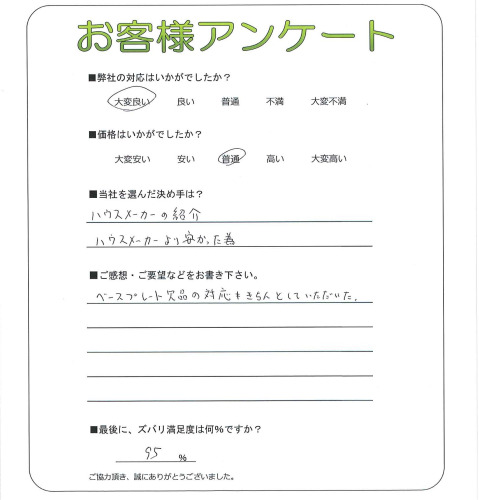 お客様アンケート
■弊社の対応はいかがでしたか？
大変良い 良い 普通 不満 大変不満
■価格はいかがでしたか？
大変安い 安い 普通 高い 大変高い
■当社を選んだ決め手は？
ハウスメーカーの紹介
ハウスメーカーより安かった為
■ご感想・ご要望などをお書き下さい。
ベースプレート欠品の対応もきちんとしていただいた。
■最後に、ズバリ満足度は何％ですか？
95 ％
ご協力頂き、誠にありがとうございました。